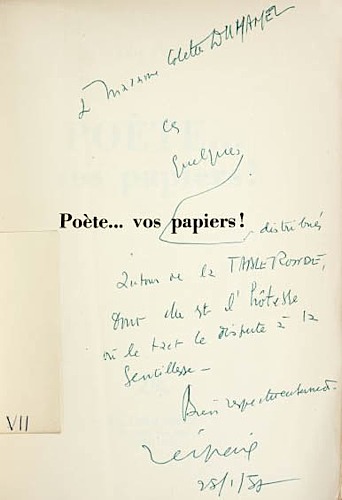 à Madame Colette DUHAMEL
ces
quelques
Poète... vos papiers!
distribués
autour de la TABLE RONDE,
dont elle est l'hôtesse
où le tact le dispute à la
gentillesse —
Bien respectueusement.
VII